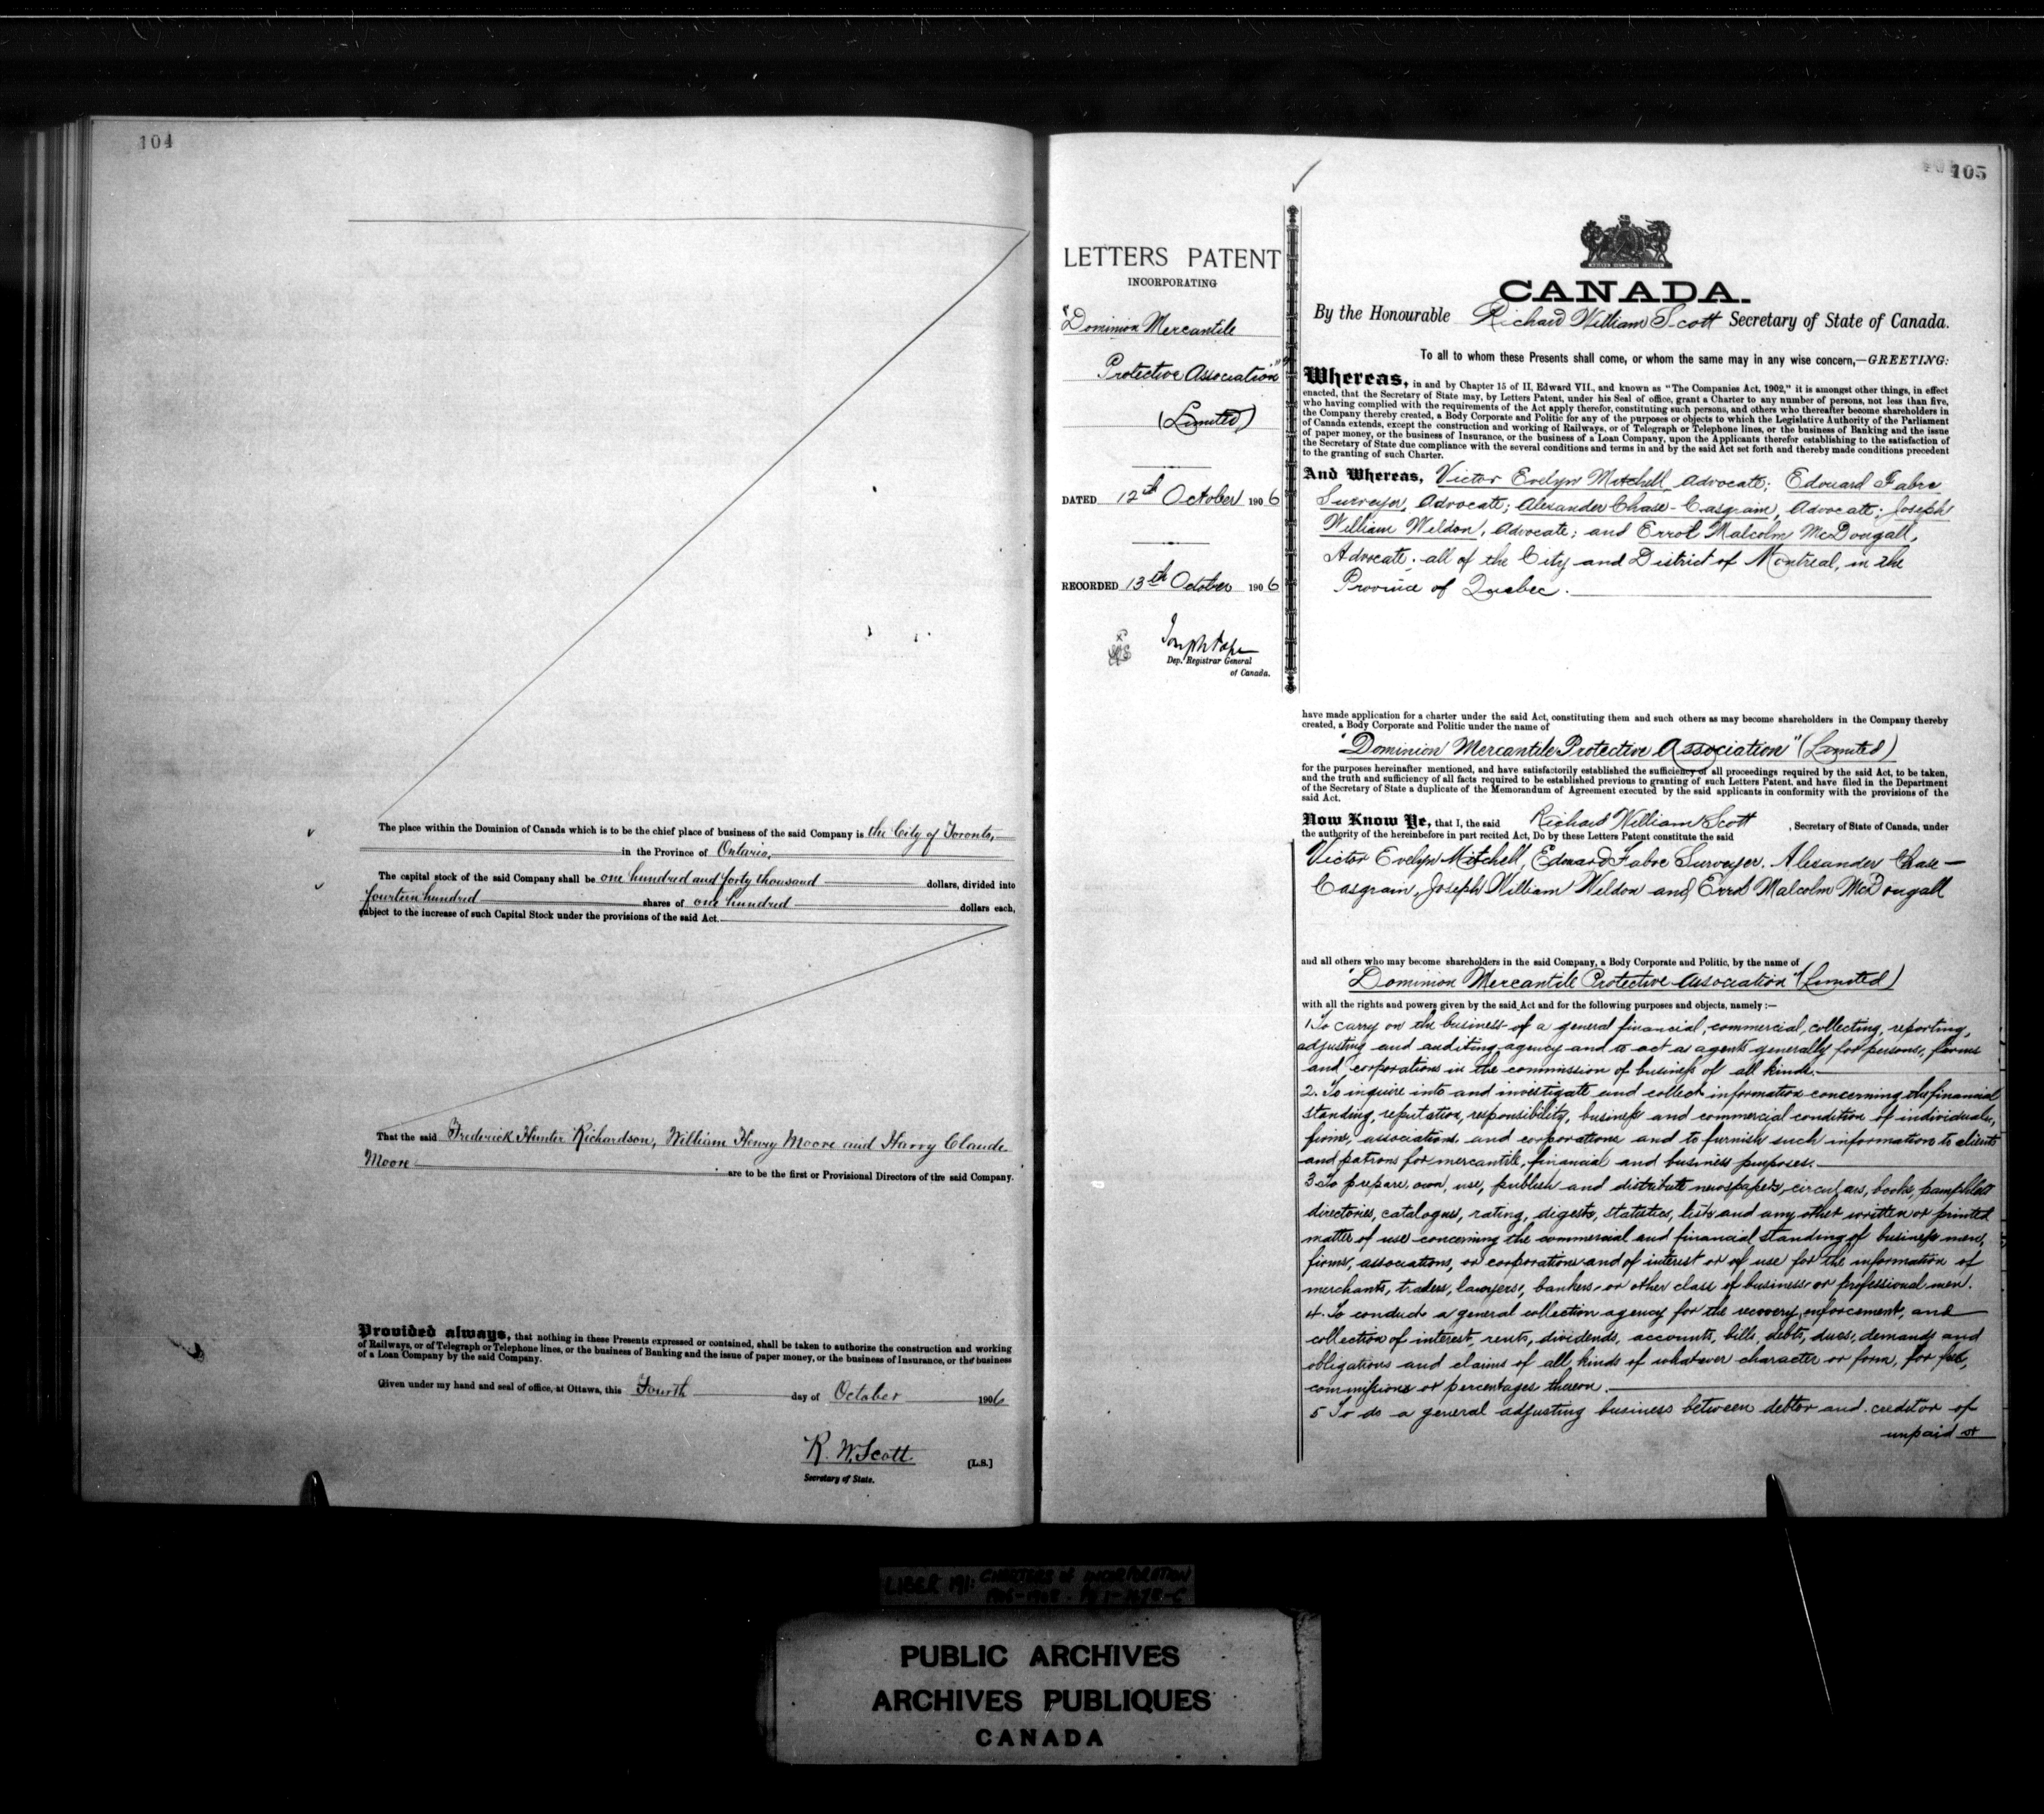 104
The place within the Dominion of Canada which is to be the chief place of business of the said Company is the City of Toronto,
in the Province of Ontario,
The capital stock of the said Company shall be one hundred and forty thousand dollars, divided into
fourteen hundred shares of one hundred dollars each,
subject to the increase of such Capital Stock under the provisions of the said Act.
That the said Frederick Hunter Richardson, William Henry Moore and Harry Claude
Moore are to be the first or Provisional Directors of the said Company.
Provided always, that nothing in these Presents expressed or contained, shall be taken to authorize the construction and working
of Railways, or of Telegraph or Telephone lines, or the business of Banking and the issue of paper money, or the business of Insurance, or the business
of a Loan Company by the said Company.
Given under my hand and seal of office, at Ottawa, this Fourth day of October 1906
R. W. Scott
[L.S.]
Secretary of State.
105
LETTERS PATENT
INCORPORATING
"Dominion Mercantile
Protective Association"
(Limited)
DATED 12th October 1906
RECORDED 13th October 1906
Joseph Pope
Dep. Registrar General
of Canada.
CANADA.
By the Honourable Richard William Scott Secretary of State of Canada.
To all to whom these Presents shall come, or whom the same may in any wise concern,—GREETING:
Whereas, in and by Chapter 15 of II, Edward VII., and known as "The Companies Act, 1902," it is amongst other things, in effect
enacted, that the Secretary of State may, by Letters Patent, under his Seal of office, grant a Charter to any number of persons, not less than five,
who having complied with the requirements of the Act apply therefor, constituting such persons, and others who thereafter become shareholders in
the Company thereby created, a Body Corporate and Politic for any of the purposes or objects to which the Legislative Authority of the Parliament
of Canada extends, except the construction and working of Railways, or of Telegraph or Telephone lines, or the business of Banking and the issue
of paper money, or the business of Insurance, or the business of a Loan Company, upon the Applicants therefor establishing to the satisfaction of
the Secretary of State due compliance with the several conditions and terms in and by the said Act set forth and thereby made conditions precedent
to the granting of such Charter.
And Whereas, Victor Evelyn Mitchell, Advocate; Edouard Fabre
Surveyer, Advocate; Alexander Chase-Casgrain, Advocate; Joseph
William Weldon, Advocate; and Errol Malcolm McDougall,
Advocate; all of the City and District of Montreal, in the
Province of Quebec.
have made application for a charter under the said Act, constituting them and such others as may become shareholders in the Company thereby
created, a Body Corporate and Politic under the name of
"Dominion Mercantile Protective Association" (Limited)
for the purposes hereinafter mentioned, and have satisfactorily established the sufficiency of all proceedings required by the said Act, to be taken,
and the truth and sufficiency of all facts required to be established previous to granting of such Letters Patent, and have filed in the Department
of the Secretary of State a duplicate of the Memorandum of Agreement executed by the said applicants in conformity with the provisions of the
said Act.
Now Know Ye, that I, the said Richard William Scott, Secretary of State of Canada, under
the authority of the hereinbefore in part recited Act, Do by these Letters Patent constitute the said
Victor Evelyn Mitchell, Edouard Fabre Surveyer, Alexander Chase-
Casgrain, Joseph William Weldon and Errol Malcolm McDougall
and all others who may become shareholders in the said Company, a Body Corporate and Politic, by the name of
"Dominion Mercantile Protective Association" (Limited)
with all the rights and powers given by the said Act and for the following purposes and objects, namely :—
1 To carry on the business of a general financial, commercial, collecting, reporting,
adjusting and auditing agency and to act as agents generally for persons, firms
and corporations in the commission of business of all kinds.
2. To inquire into and investigate and collect information concerning the financial
standing, reputation, responsibility, business and commercial condition of individuals,
firms, associations, and corporations and to furnish such information to clients
and patrons for mercantile, financial and business purposes.
3 To prepare, own, use, publish and distribute newspapers, circulars, books, pamphlets
directories, catalogues, rating, digests, statistics, lists and any other written or printed
matter of use concerning the commercial and financial standing of business men,
firms, associations, or corporations and of interest or of use for the information of
merchants, traders, lawyers, bankers or other class of business or professional men.
4. To conduct a general collection agency for the recovery, enforcement, and
collection of interest, rents, dividends, accounts, bills, debts, dues, demands and
obligations and claims of all kinds of whatever character or form, for fees,
commissions or percentages thereon.
5 To do a general adjusting business between debtor and creditor of
unpaid or
LIBER 191: CHARTERS of INCORPORATION
PUBLIC ARCHIVES
ARCHIVES PUBLIQUES
CANADA